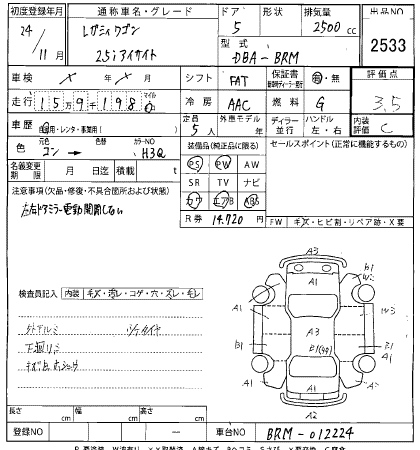 初度登録年月 通称車名・グレード ドア 形状 排気量 出品NO
24 / 11月 レガシィワゴン 5 2500cc 2533
2.5i アイサイト 型式
DBA-BRM
車検 X年X月 シフト FAT 保証書 有・無 評価点
走行 159千198 マイル 冷房 AAC 燃料 G 3.5
車歴 自家用・レンタ・事業用( ) 定員 5人 外車モデル 年 ディーラー 並行 ハンドル 左・右 内装評価 C
色 コン → 色替 カラーNO H3Q 装備品(純正品に限る) セールスポイント(正常に機能するもの)
名義変更期限 月 日迄 積載 t PS PW AW
注意事項(欠品・修復・不具合箇所および状態) SR TV ナビ
左右ドアミラー電動開閉しない カワ エアB ABS
R券 14.720円 FW キズ・ヒビ割・リペア跡・X要
検査員記入 内装 キズ・汚レ・コゲ・穴・ズレ・モレ
外アルミ
下廻りサビ
A3
B1 A1
A1 W3
A1 A3 B1
A1 A1
A2
長さ cm 幅 cm 高さ cm
登録NO 車台NO BRM-012224